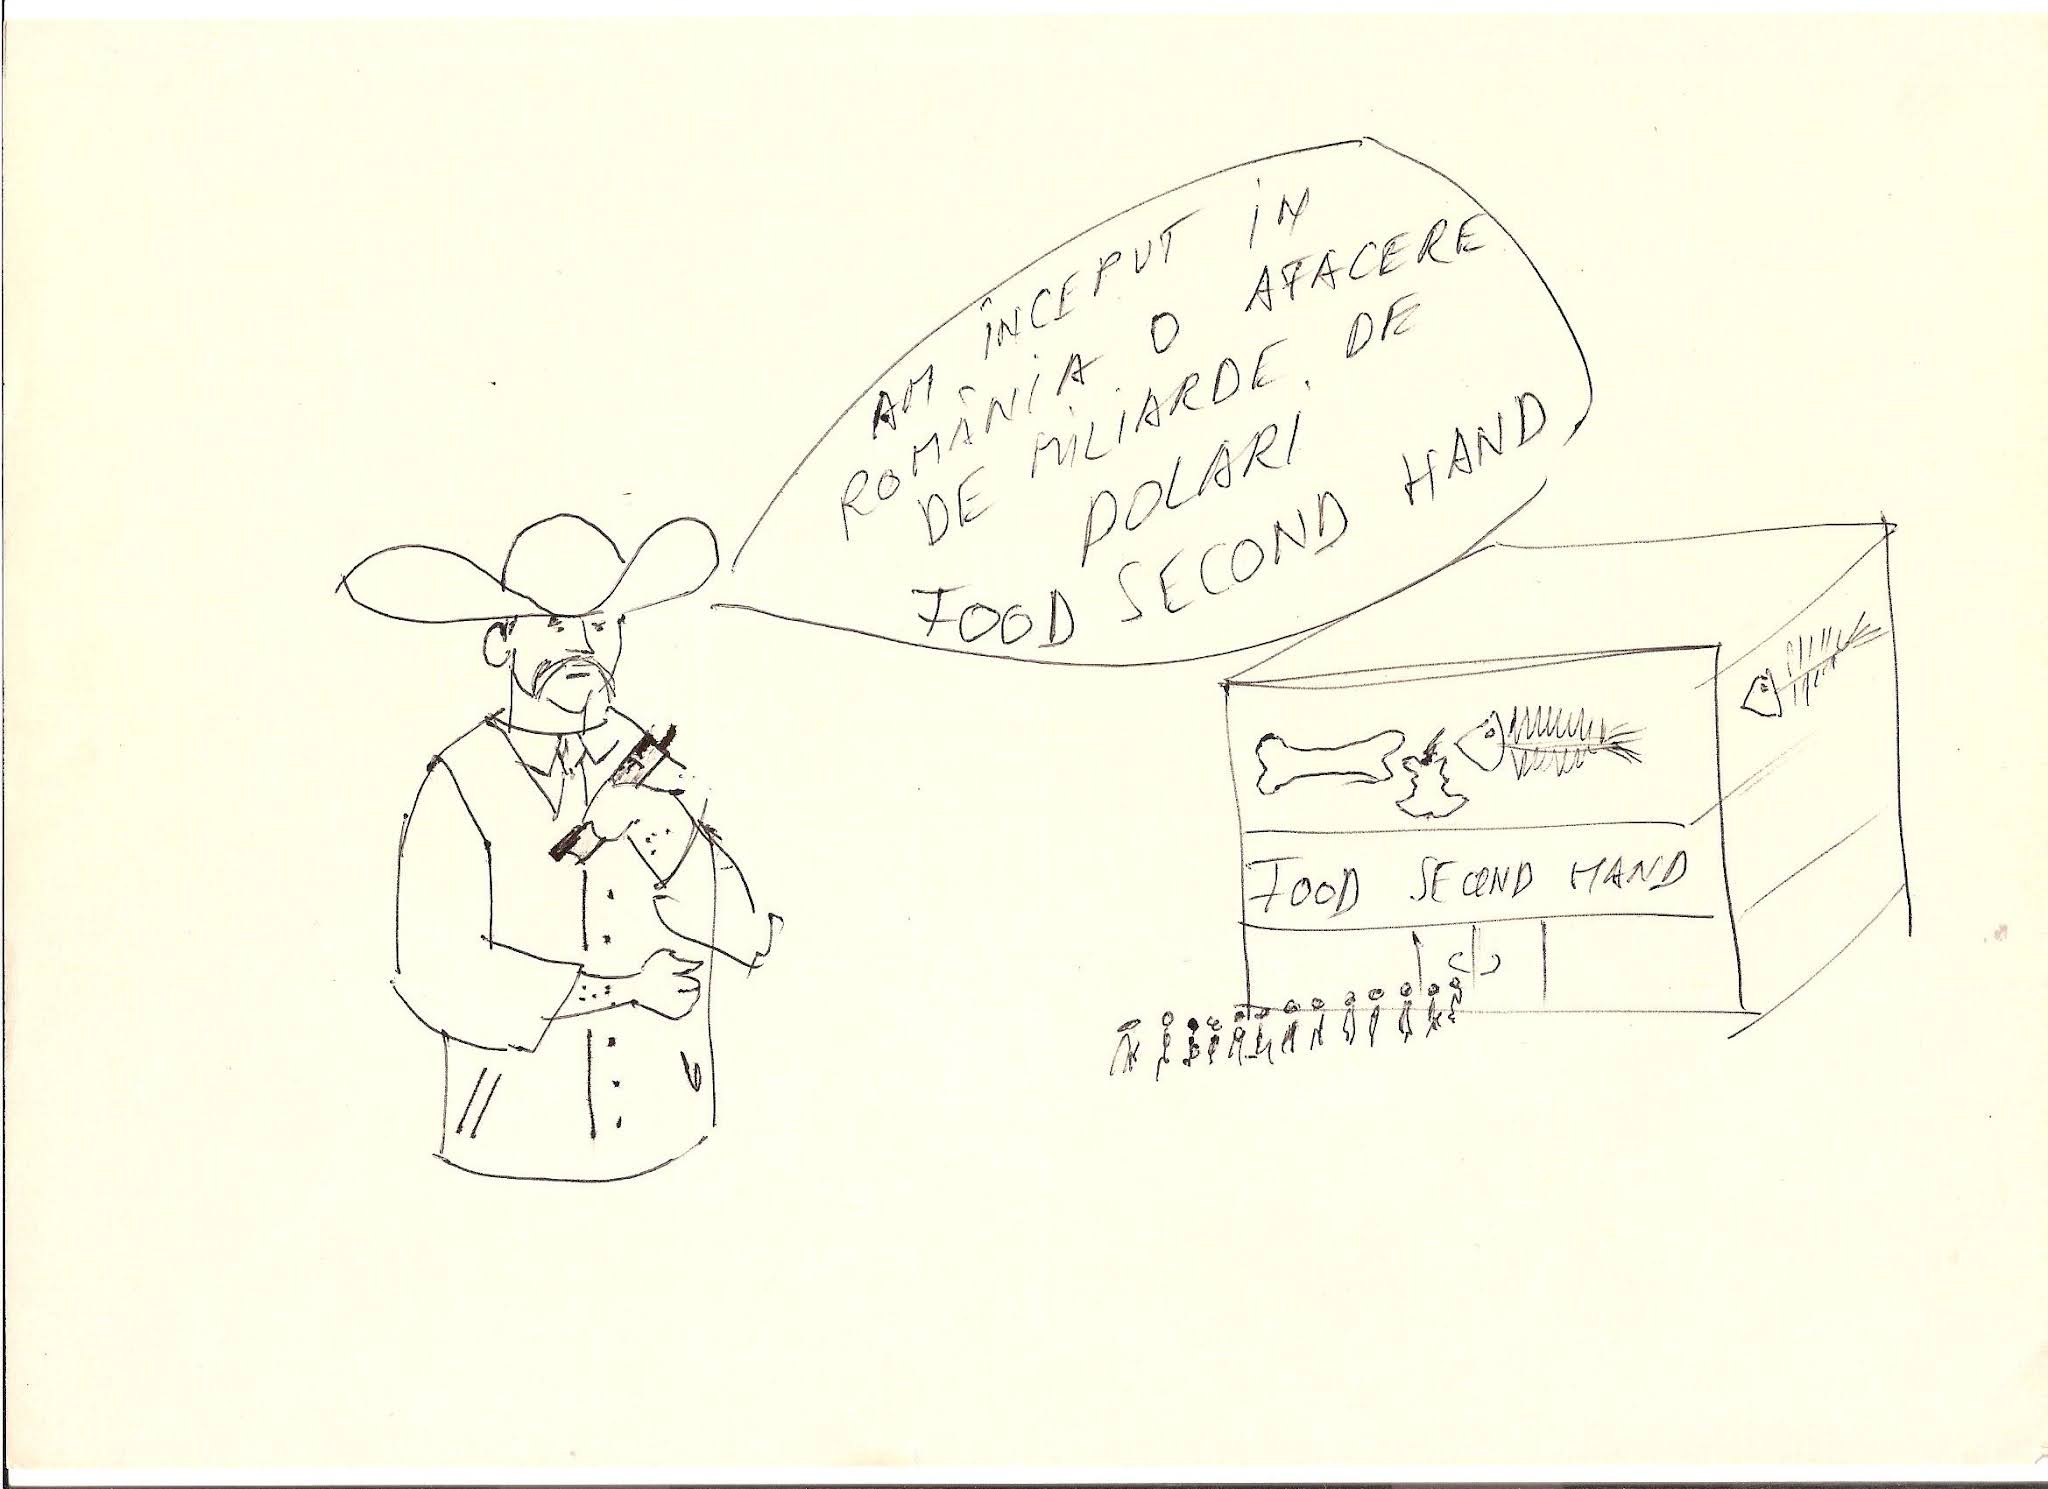 AM ÎNCEPUT IN
ROMÂNIA O AFACERE
DE MILIARDE. DE
DOLARI
FOOD SECOND HAND
FOOD SECOND HAND